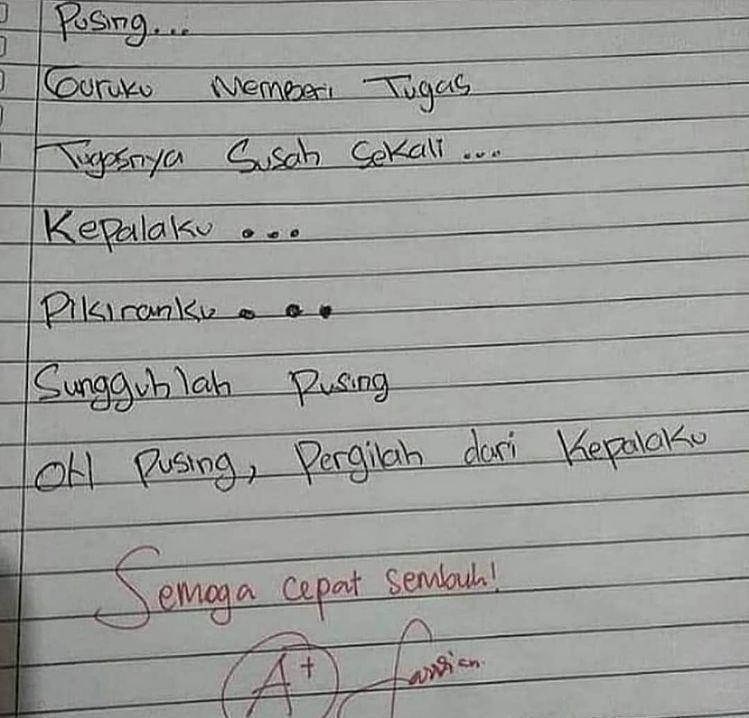 Pusing...
Guruku Memberi Tugas
Tugasnya Susah Sekali...
Kepalaku...
Pikiranku...
Sungguhlah Pusing
OH Pusing, Pergilah dari Kepalaku
Semoga cepat sembuh!
A+